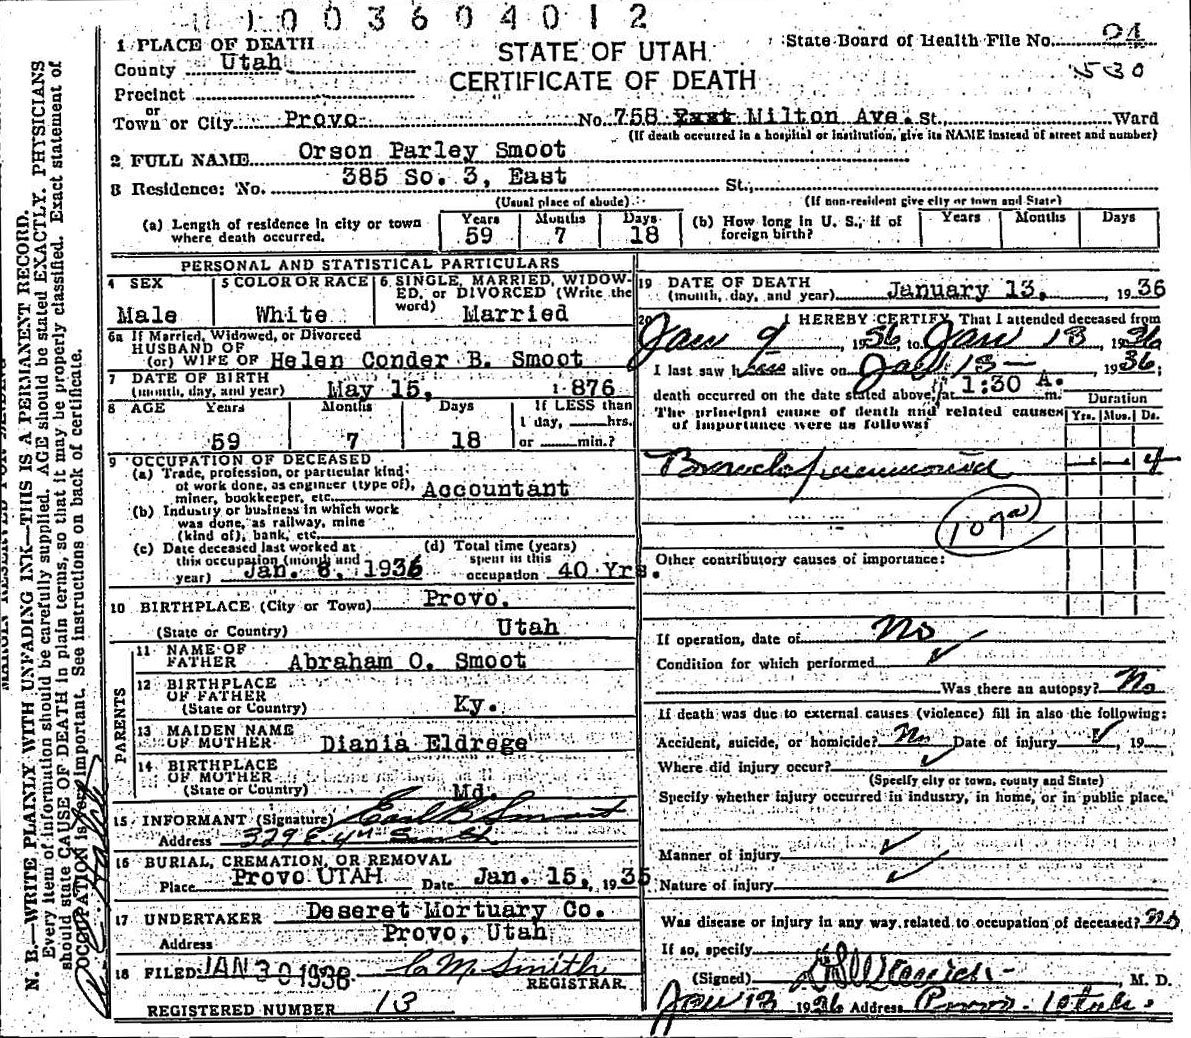 1003604012
1 PLACE OF DEATH
STATE OF UTAH
State Board of Health File No. 04
County Utah
CERTIFICATE OF DEATH
530
Precinct
or
Town or City Provo No. 758 East Milton Ave. St., Ward
(If death occurred in a hospital or institution, give its NAME instead of street and number)
2 FULL NAME Orson Parley Smoot
3 Residence: No. 385 So. 3, East St.,
(Usual place of abode) (If non-resident give city or town and State)
(a) Length of residence in city or town where death occurred. Years 59 Months 7 Days 18
(b) How long in U. S., if of foreign birth? Years Months Days
PERSONAL AND STATISTICAL PARTICULARS
4 SEX Male
5 COLOR OR RACE White
6 SINGLE, MARRIED, WIDOWED, or DIVORCED (Write the word) Married
6a If Married, Widowed, or Divorced
HUSBAND OF
(or) WIFE OF Helen Conder B. Smoot
7 DATE OF BIRTH
(month, day, and year) May 15, 1876
8 AGE Years 59 Months 7 Days 18
If LESS than
1 day, hrs.
or min.?
9 OCCUPATION OF DECEASED
(a) Trade, profession, or particular kind
of work done, as engineer (type of),
miner, bookkeeper, etc. Accountant
(b) Industry or business in which work
was done, as railway, mine
(kind of), bank, etc.
(c) Date deceased last worked at
this occupation (month and
year) Jan. 8, 1936
(d) Total time (years)
spent in this
occupation 40 Yrs.
10 BIRTHPLACE (City or Town) Provo.
(State or Country) Utah
PARENTS
11 NAME OF
FATHER Abraham O. Smoot
12 BIRTHPLACE
OF FATHER
(State or Country) Ky.
13 MAIDEN NAME
OF MOTHER Diania Eldrege
14 BIRTHPLACE
OF MOTHER
(State or Country) Md.
15 INFORMANT (Signature) Earl B Smoot
Address 379 E. 4th South
16 BURIAL, CREMATION, OR REMOVAL
Place Provo UTAH Date Jan. 15, 1935
17 UNDERTAKER Deseret Mortuary Co.
Address Provo, Utah
18 FILED JAN 30 1936 C. M. Smith
REGISTRAR.
REGISTERED NUMBER 13
19 DATE OF DEATH
(month, day, and year) January 13, 1936
20 I HEREBY CERTIFY, That I attended deceased from
Jan 9, 1936 to Jan 13, 1936
I last saw h alive on Jan 13 1936;
death occurred on the date stated above, at 1:30 A. m.
The principal cause of death and related causes
of importance were as follows:
Duration
Yrs. Mos. Ds.
Bronchopneumonia — — 4
107a
Other contributory causes of importance:
If operation, date of No
Condition for which performed ✓
Was there an autopsy? No
If death was due to external causes (violence) fill in also the following:
Accident, suicide, or homicide? No Date of injury ✓, 19
Where did injury occur? ✓
(Specify city or town, county and State)
Specify whether injury occurred in industry, in home, or in public place.
Manner of injury ✓
Nature of injury ✓
Was disease or injury in any way related to occupation of deceased? No
If so, specify
(Signed) M. D.
Jan 13 1936 Address Provo - Utah.
N. B.—WRITE PLAINLY WITH UNFADING INK—THIS IS A PERMANENT RECORD.
Every item of information should be carefully supplied. AGE should be stated EXACTLY. PHYSICIANS
should state CAUSE OF DEATH in plain terms, so that it may be properly classified. Exact statement of
OCCUPATION is very important. See instructions on back of certificate.